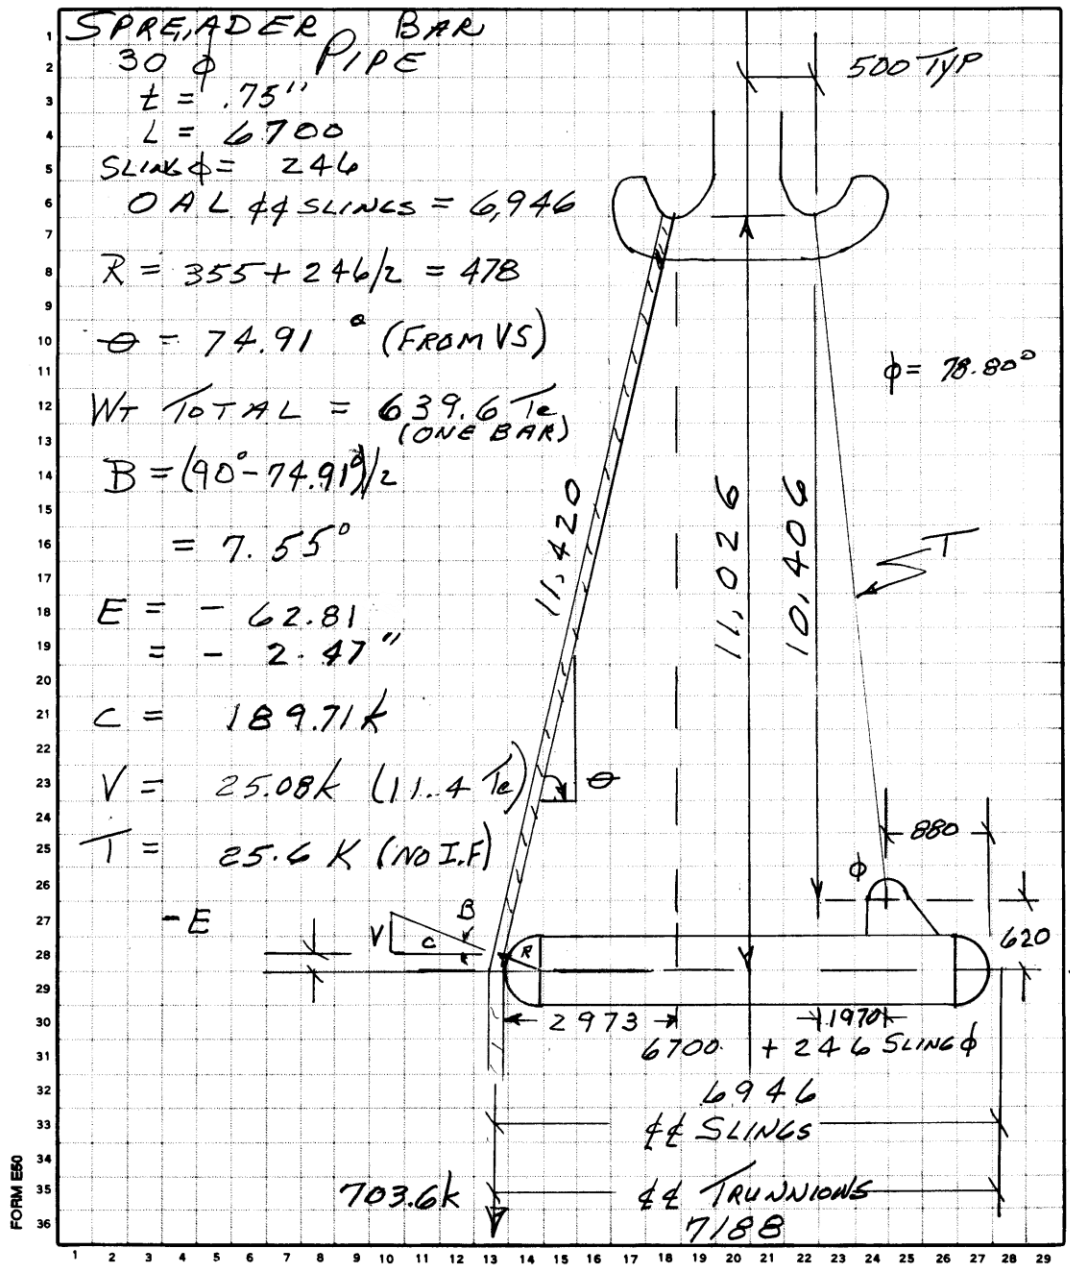 SPREADER BAR
30 ϕ PIPE
t = .75"
L = 6700
SLING ϕ = 246
OAL ȼȼ SLINGS = 6,946
R = 355 + 246/2 = 478
θ = 74.91° (FROM VS)
WT TOTAL = 639.6 Te
(ONE BAR)
B = (90° - 74.91°)/2
= 7.55°
E = - 62.81
= - 2.47"
C = 189.71k
V = 25.08k (11.4 Te)
T = 25.6 K (NO I.F)
500 TYP
ϕ = 78.80°
11,420
11,026
10,406
T
θ
880
ϕ
620
-E
V
C
B
R
2973
1970
6700 + 246 SLING ϕ
6946
ȼȼ SLINGS
703.6k
ȼȼ TRUNNIONS
7188
FORM E50
1
2
3
4
5
6
7
8
9
10
11
12
13
14
15
16
17
18
19
20
21
22
23
24
25
26
27
28
29
30
31
32
33
34
35
36
1 2 3 4 5 6 7 8 9 10 11 12 13 14 15 16 17 18 19 20 21 22 23 24 25 26 27 28 29